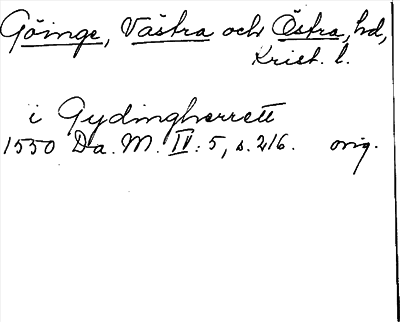 Göinge, Västra och Östra, hd,
Krist. l.
i Gydingherrett
1550 Da. M. IV: 5, s. 216. orig.